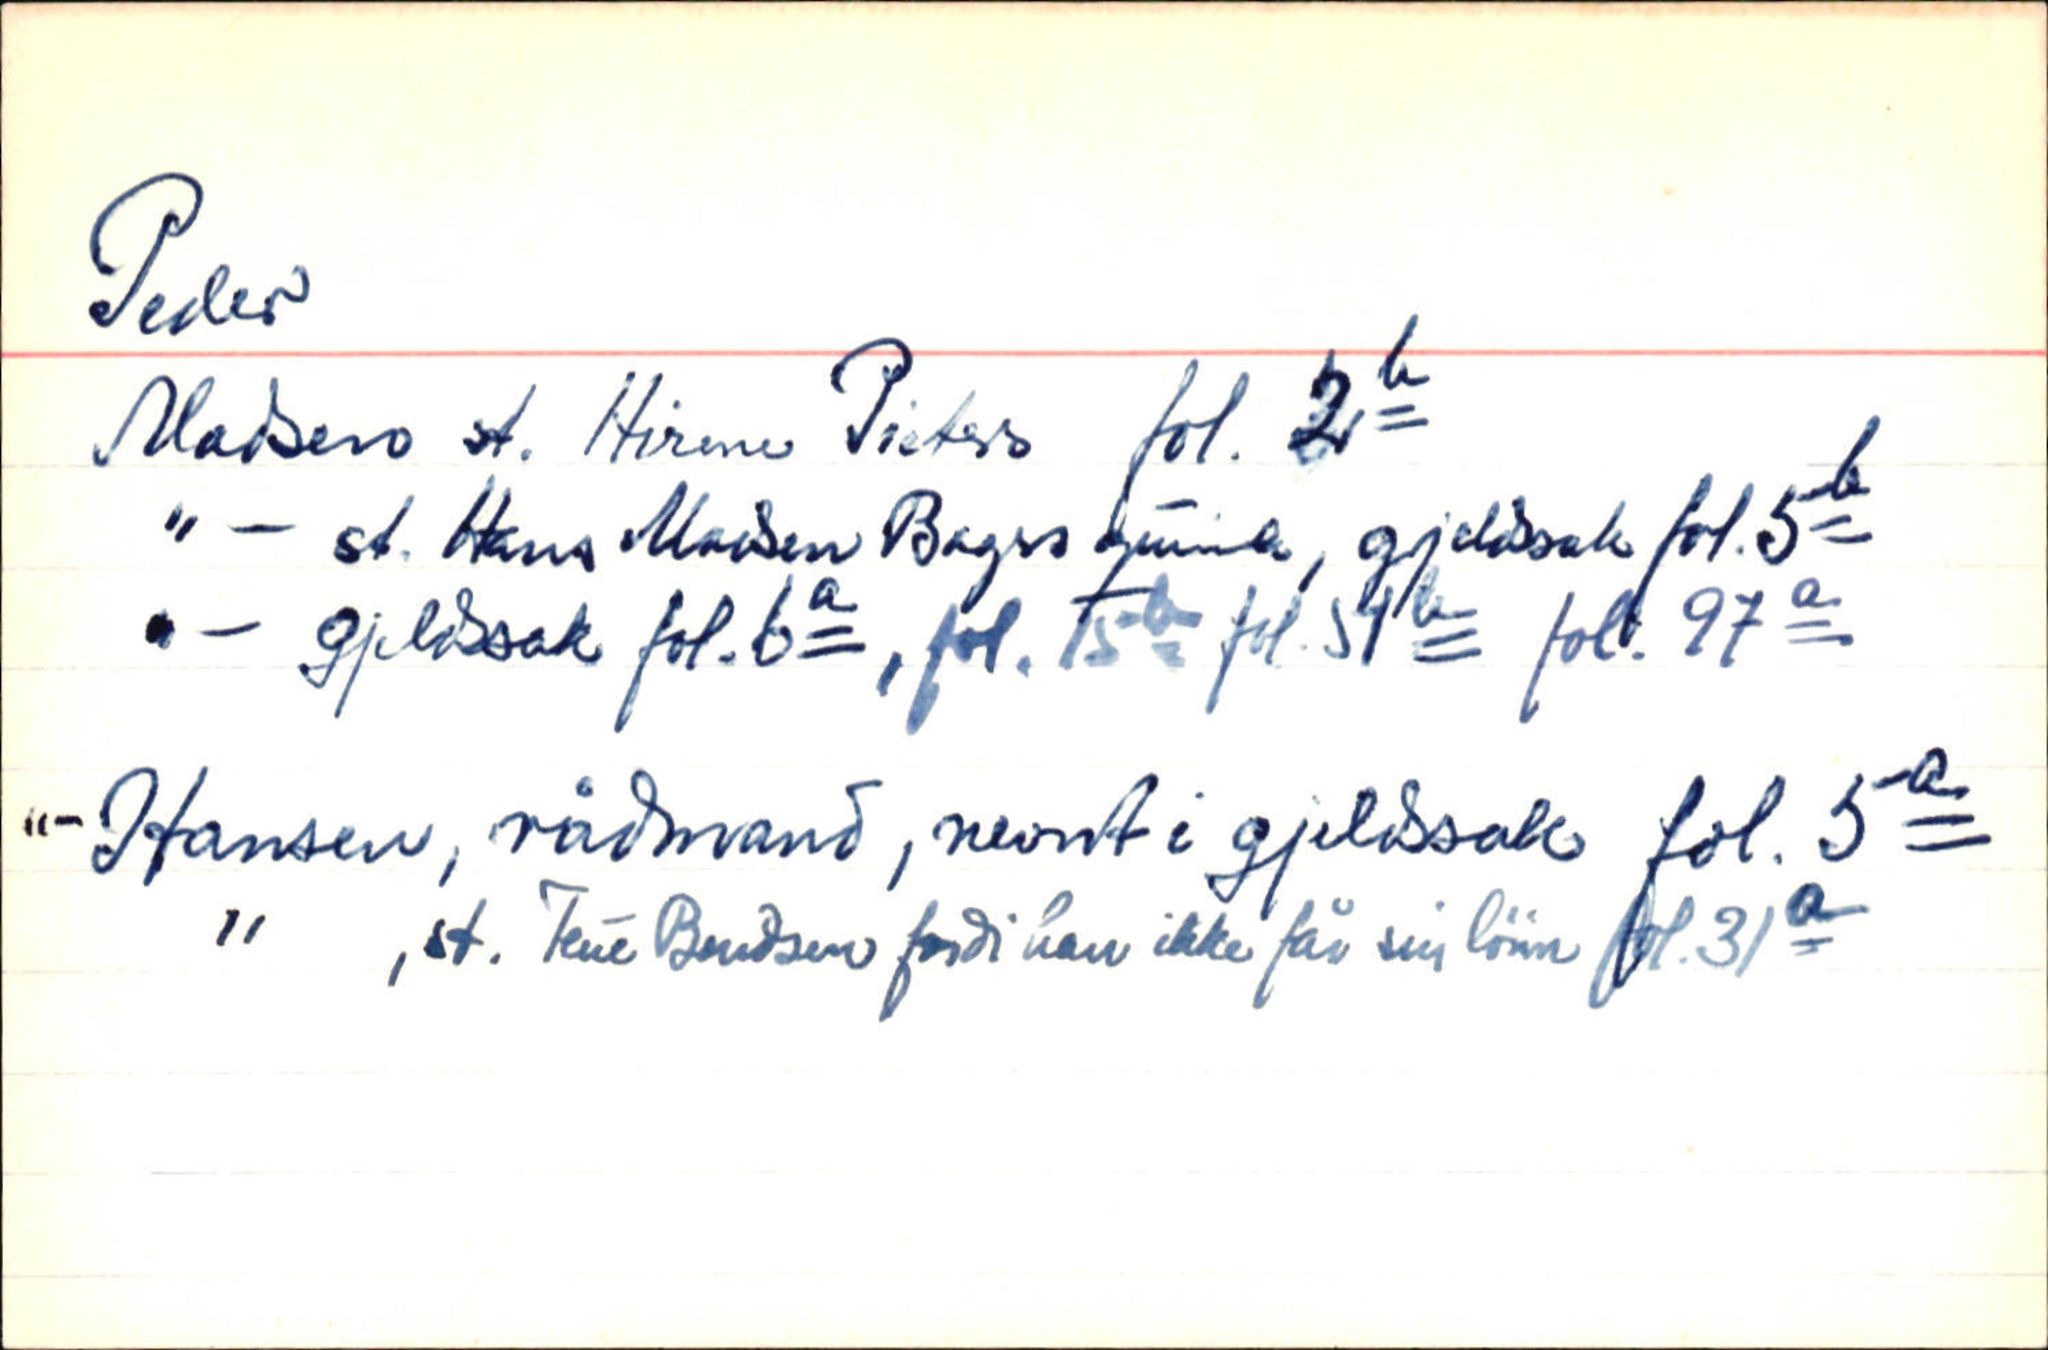 Peder
Madsen st. Hirene Pieters fol. 2b
" — st. Hans Madsen Bagers qvinde, gjeldssak fol. 5b
" — gjeldssak fol. 6a, fol. 15b fol. 54b fol. 97a
"- Hansen, rådmand, nevnt i gjeldssak fol. 5a
" , st. Bendsen fordi han ikke får sin lönn fol. 31a